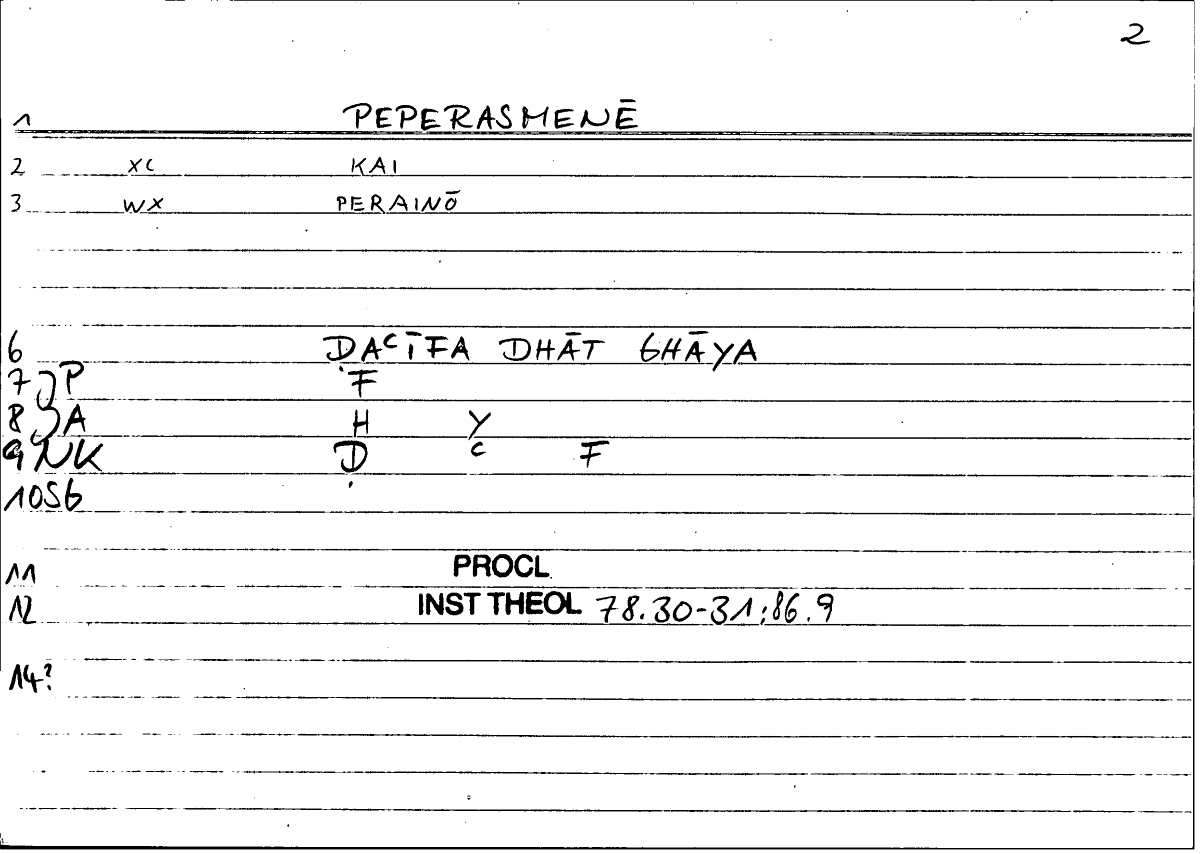 2
1 PEPERASMENĒ
2 XC KAI
3 WX PERAINŌ
6 ḌAᶜĪFA DHĀT GHĀYA
7 JP F
8 JA H Y
9 NK Ḍ ᶜ F
10 SG
11 PROCL
12 INST THEOL 78.30-31;86.9
14?